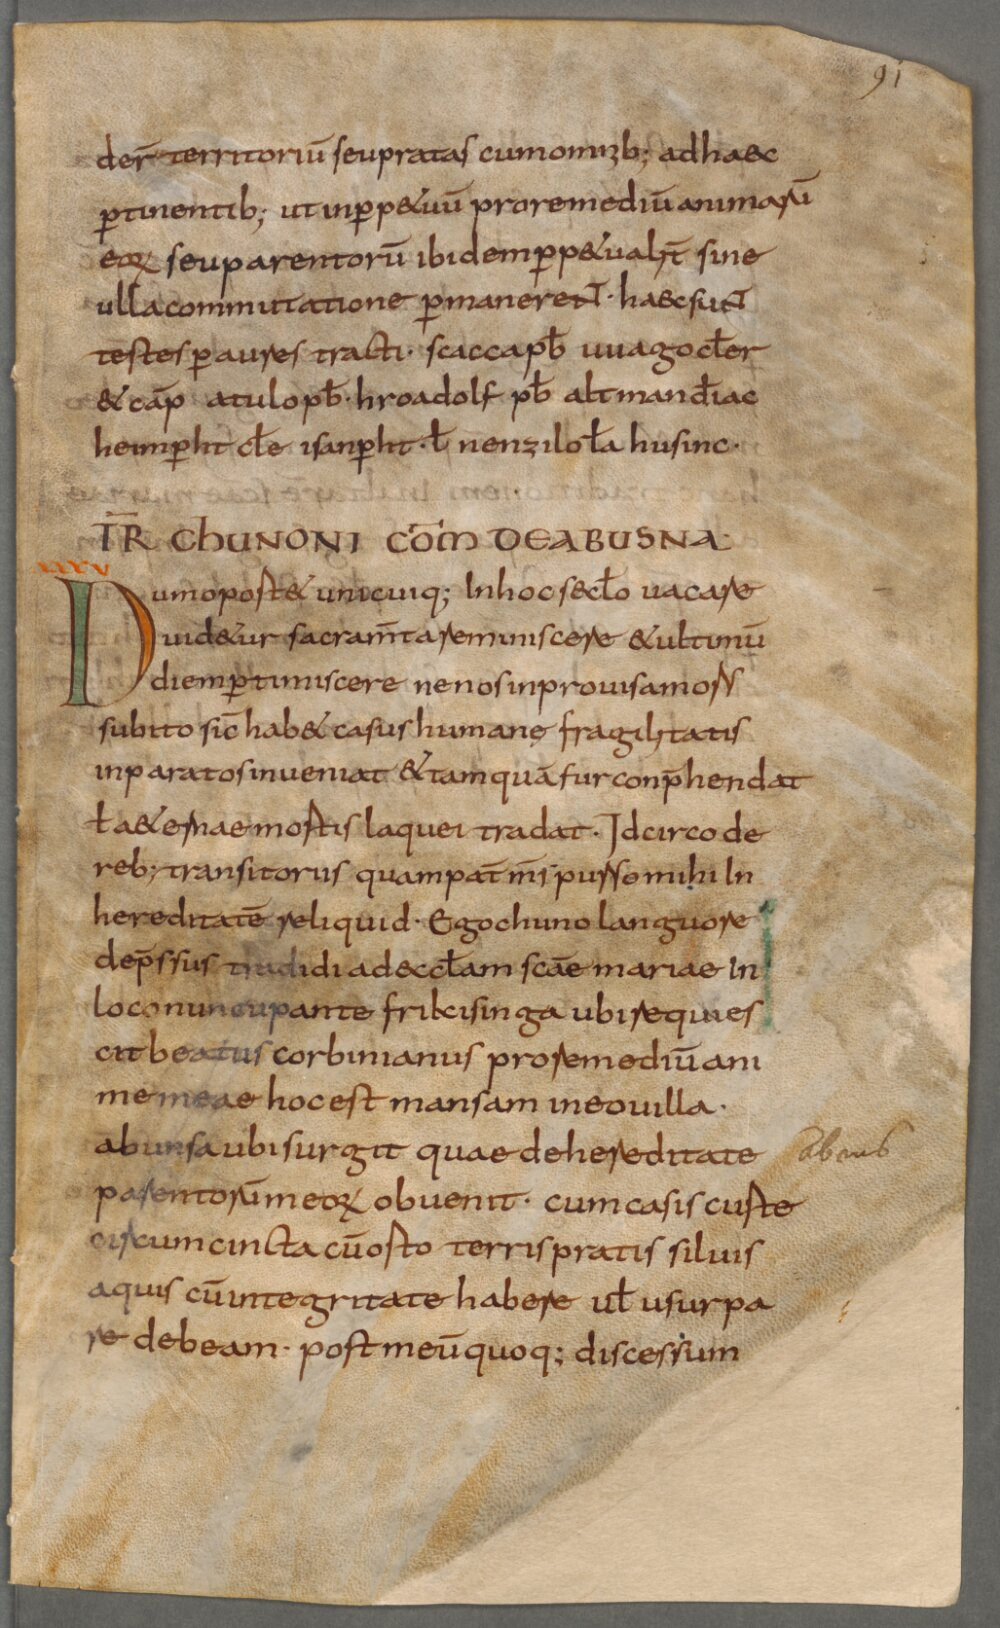 91
der̄ territoriū seu pratas cum omnib; ad haec
p̄tinentib; ut in p̄petuū pro remediū animarū
eoꝝ seu parentorū ibidem p̄petualit̄ sine
ulla commutatione p̄manerent · haec sunt
testes p̄ aures tracti · scaccap̄b uuago cl̄er
& cāp atulo pb̄ · hroadolf pb̄ altman diac̄
heimp̄ht cl̄e isanp̄ht · l̄ nenzilo l̄a husinc ·
T̄R CHUNONI COM̄ DE ABUSNA
Dum oportet unicuiq; In hoc secl̄o uacare
uidetur sacram̄ta reminiscere & ultimū
diem p̄timiscere ne nos inprouisa mors
subito sic̄ habet casus humanę fragilitatis
inparatos inueniat & tamquā fur conp̄hendat
t̄ aeternae mortis laquei tradat · Idcirco de
reb; transitoriis quam pat̄ m̄i pursso mihi In
hereditatē reliquid · Ego chuno languore
dep̄ssus tradidi ad eccl̄am scāe mariae In
loco nuncupante frikisinga ubi requies
cit beatus corbinianus pro remediū ani
me meae hoc est mansam in eo uilla ·
abunsa ubi surgit quae de hereditate
parentorū meoꝝ obuenit · cum casis curte
circumcincta cū orto terris pratis siluis
aquis cū integritate habere ul̄ usurpa
re debeam · post meū quoq; discessum
abens